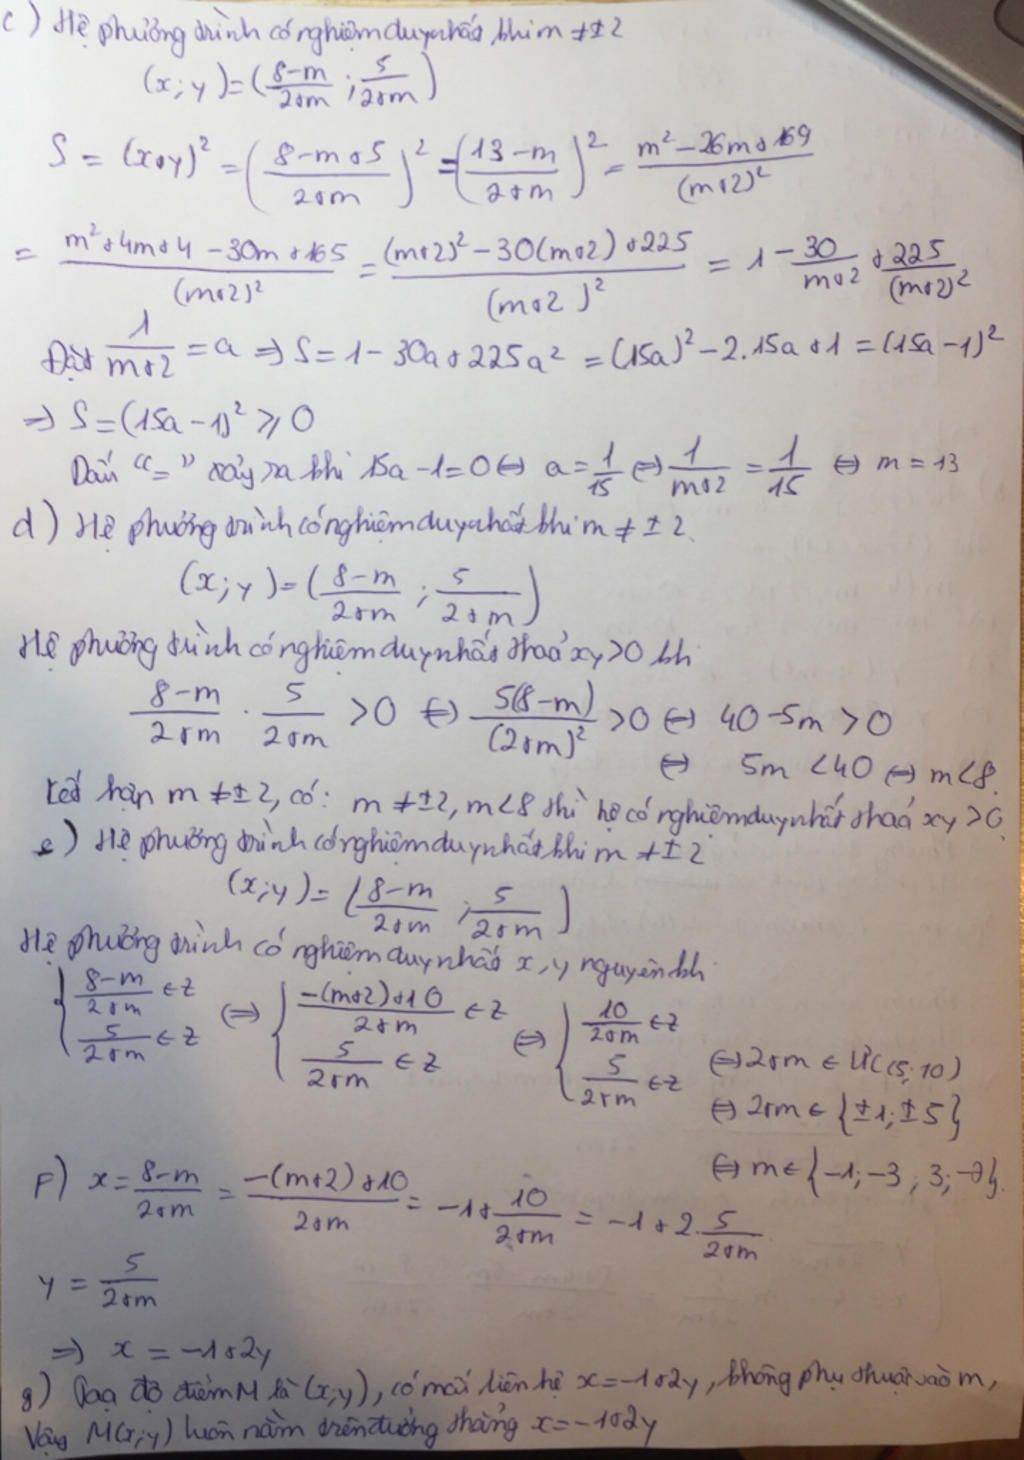 c) Hệ phương trình có nghiệm duy nhất khi m ≠ ±2
(x; y) = (8-m/2+m ; 5/2+m)
S = (x+y)² = (8-m+5/2+m)² = (13-m/2+m)² = m²-26m+169/(m+2)²
= m²+4m+4-30m+165/(m+2)² = (m+2)²-30(m+2)+225/(m+2)² = 1 - 30/m+2 + 225/(m+2)²
Đặt 1/m+2 = a ⇒ S = 1-30a+225a² = (15a)²-2.15a+1 = (15a-1)²
⇒ S = (15a-1)² ⩾ 0
Dấu "=" xảy ra khi 15a-1=0 ⇔ a = 1/15 ⇔ 1/m+2 = 1/15 ⇔ m = 13
d) Hệ phương trình có nghiệm duy nhất khi m ≠ ±2.
(x; y) = (8-m/2+m ; 5/2+m)
Hệ phương trình có nghiệm duy nhất thoả xy>0 kh
8-m/2+m . 5/2+m >0 ⇔ 5(8-m)/(2+m)² >0 ⇔ 40-5m >0
⇔ 5m <40 ⇔ m<8.
Kết hợp m ≠ ±2, có: m ≠ ±2, m<8 thì hệ có nghiệm duy nhất thoả xy >0.
e) Hệ phương trình có nghiệm duy nhất khi m ≠ ±2
(x;y) = (8-m/2+m ; 5/2+m)
Hệ phương trình có nghiệm duy nhất x, y nguyên kh
{ 8-m/2+m ∈ Z ; 5/2+m ∈ Z ⇔ { -(m+2)+10/2+m ∈ Z ; 5/2+m ∈ Z ⇔ { 10/2+m ∈ Z ; 5/2+m ∈ Z
⇔ 2+m ∈ ƯC(5;10)
⇔ 2+m ∈ {±1; ±5}
⇔ m ∈ {-1; -3; 3; -7}.
F) x = 8-m/2+m = -(m+2)+10/2+m = -1 + 10/2+m = -1+2.5/2+m
y = 5/2+m
⇒ x = -1+2y
g) Toạ độ điểm M là (x;y), có mối liên hệ x=-1+2y, không phụ thuộc vào m,
Vậy M(x;y) luôn nằm trên đường thẳng x=-1+2y